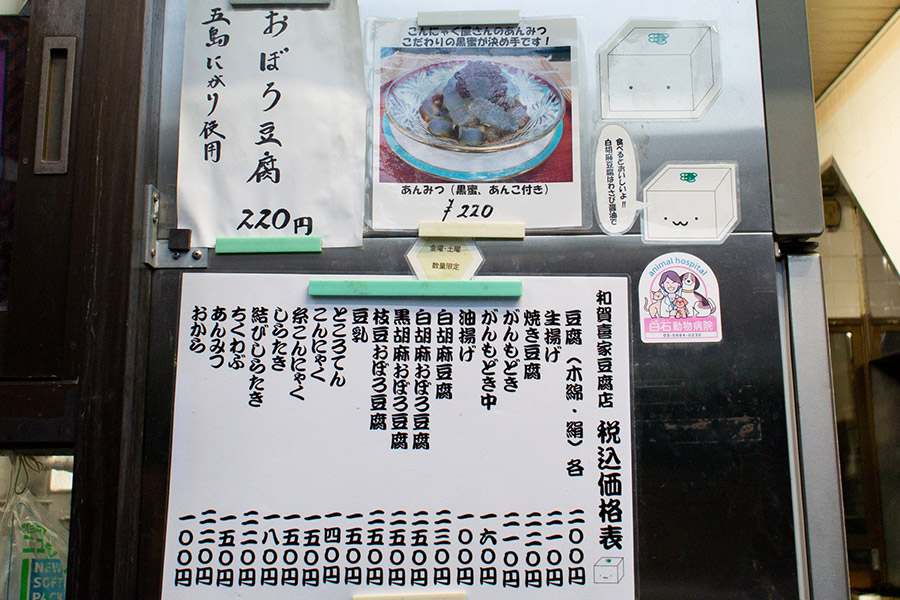 おぼろ豆腐
五島にがり使用
220円
こんにゃく屋さんのあんみつ
こだわりの黒蜜が決め手です!
あんみつ(黒蜜、あんこ付き)
¥220
食べるとおいしいよ!!
白胡麻豆腐はわさび醤油で
金曜・土曜
数量限定
animal hospital
白石動物病院
03-5684-0230
和賀喜家豆腐店 税込価格表
豆腐(木綿・絹)各 二〇〇円
生揚げ 二一〇円
焼き豆腐 二二〇円
がんもどき 二一〇円
がんもどき中 一六〇円
油揚げ 一〇〇円
白胡麻豆腐 二三〇円
白胡麻おぼろ豆腐 二五〇円
黒胡麻おぼろ豆腐 二五〇円
枝豆おぼろ豆腐 二五〇円
豆乳 一五〇円
ところてん 一四〇円
こんにゃく 一五〇円
糸こんにゃく 一五〇円
しらたき 一八〇円
結びしらたき 二二〇円
ちくわぶ 一五〇円
あんみつ 二二〇円
おから 一〇〇円
NEW
SOFT
PACK